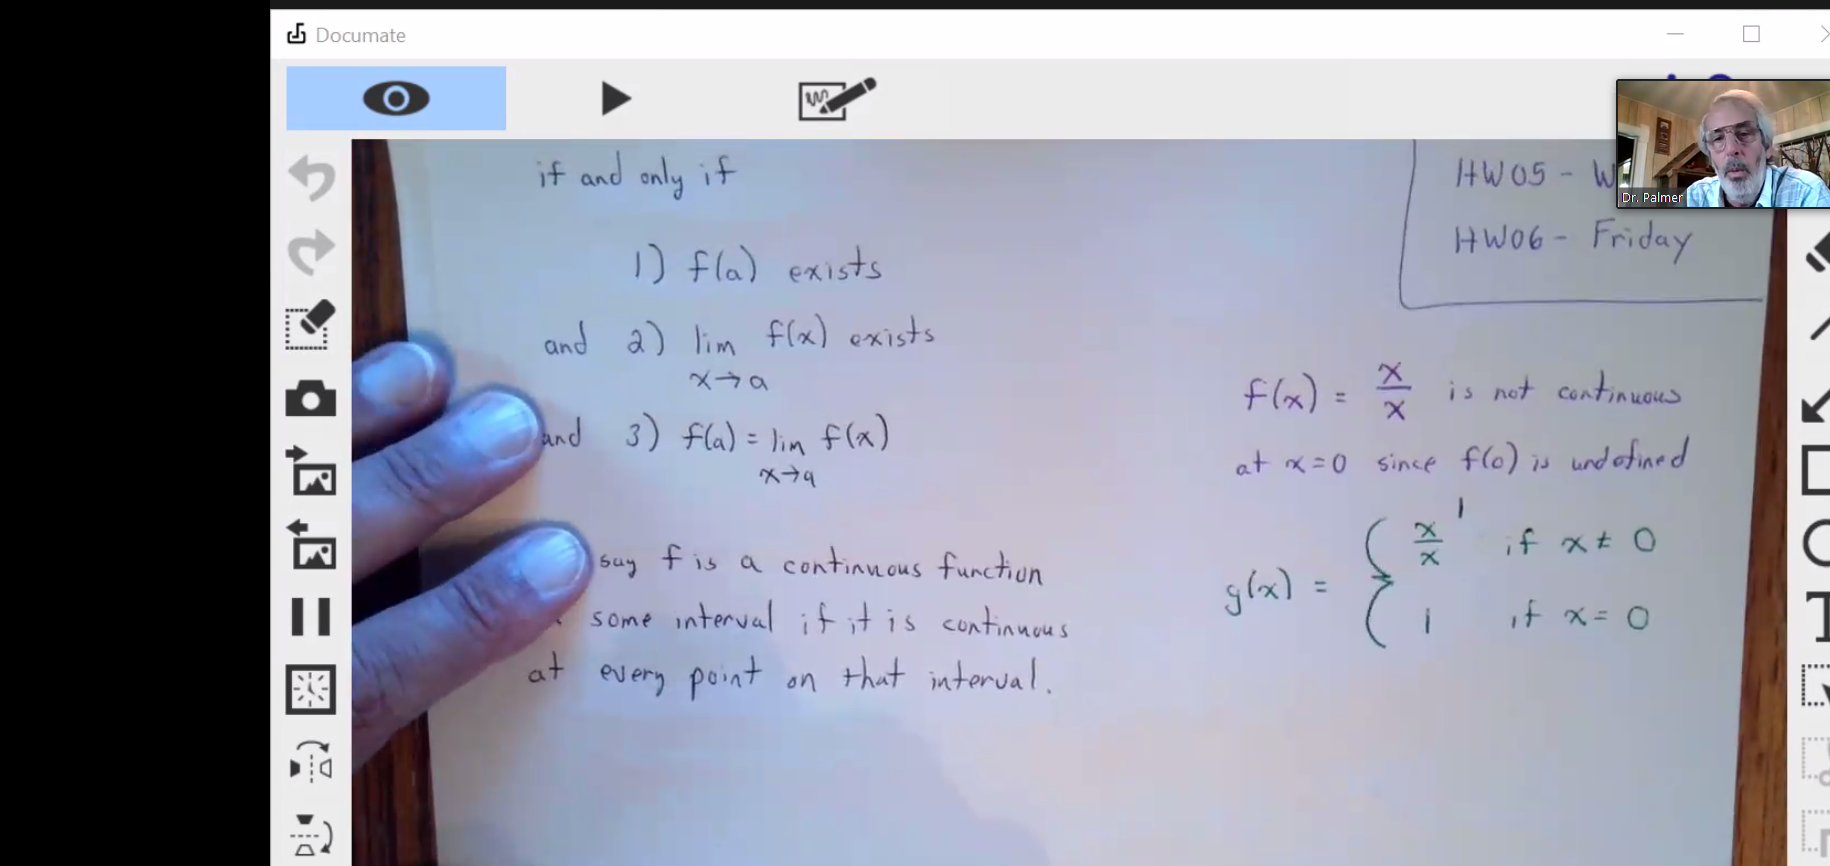 Documate
if and only if
1) f(a) exists
and 2) lim f(x) exists
x→a
and 3) f(a) = lim f(x)
x→a
say f is a continuous function
some interval if it is continuous
at every point on that interval.
HW05 - W
HW06 - Friday
Dr. Palmer
f(x) = x/x is not continuous
at x=0 since f(0) is undefined
g(x) = { x/x 1 if x ≠ 0
1 if x = 0